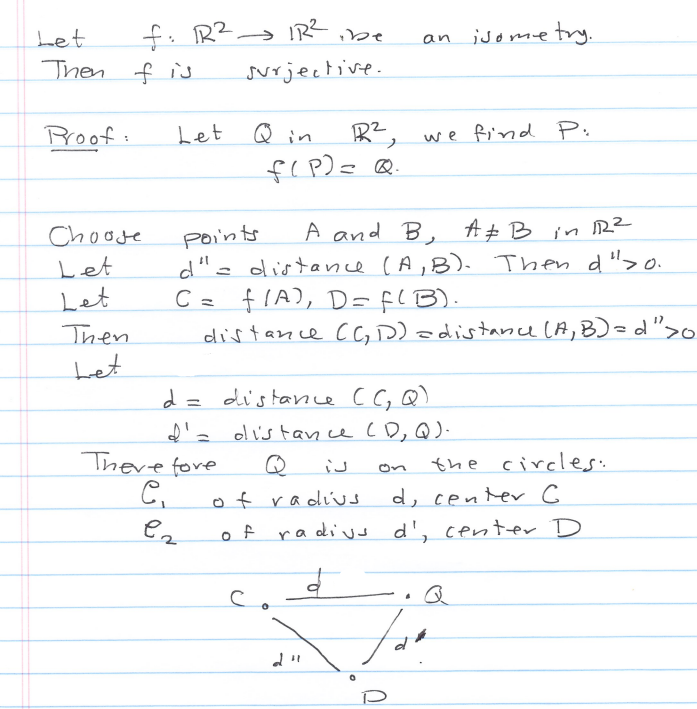 Let f: ℝ² → ℝ², be an isometry.
Then f is surjective.
Proof: Let Q in ℝ², we find P:
f(P) = Q.
Choose points A and B, A ≠ B in ℝ²
Let d" = distance (A, B). Then d" > 0.
Let C = f(A), D = f(B).
Then distance (C, D) = distance (A, B) = d" > 0
Let
d = distance (C, Q)
d' = distance (D, Q).
Therefore Q is on the circles:
C₁ of radius d, center C
C₂ of radius d', center D
C d Q
d" d'
D